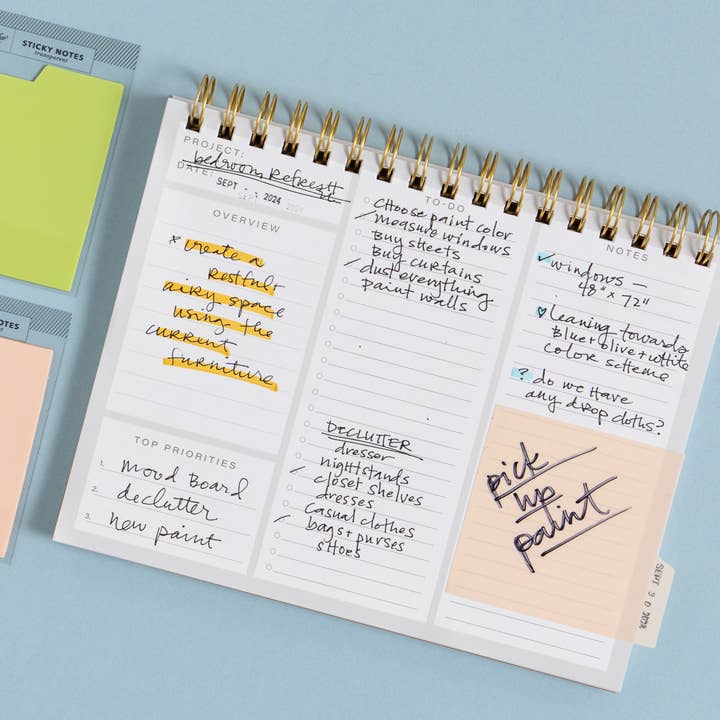 STICKY NOTES
transparent
NOTES
PROJECT:
bedroom Refresh
DATE:
SEPT 2024
OVERVIEW
* create a
restful
airy space
using the
current
furniture
TOP PRIORITIES
1. mood Board
2. declutter
3. new paint
TO-DO
Choose paint color
measure windows
Buy sheets
Buy curtains
dust everything
paint walls
DECLUTTER
dresser
nightstands
closet shelves
dresses
casual clothes
bags + purses
shoes
NOTES
windows —
48" x 72"
leaning towards
Blue + olive + white
color scheme
? do we have
any drop cloths?
pick
up
paint
SEPT 3 0 2028